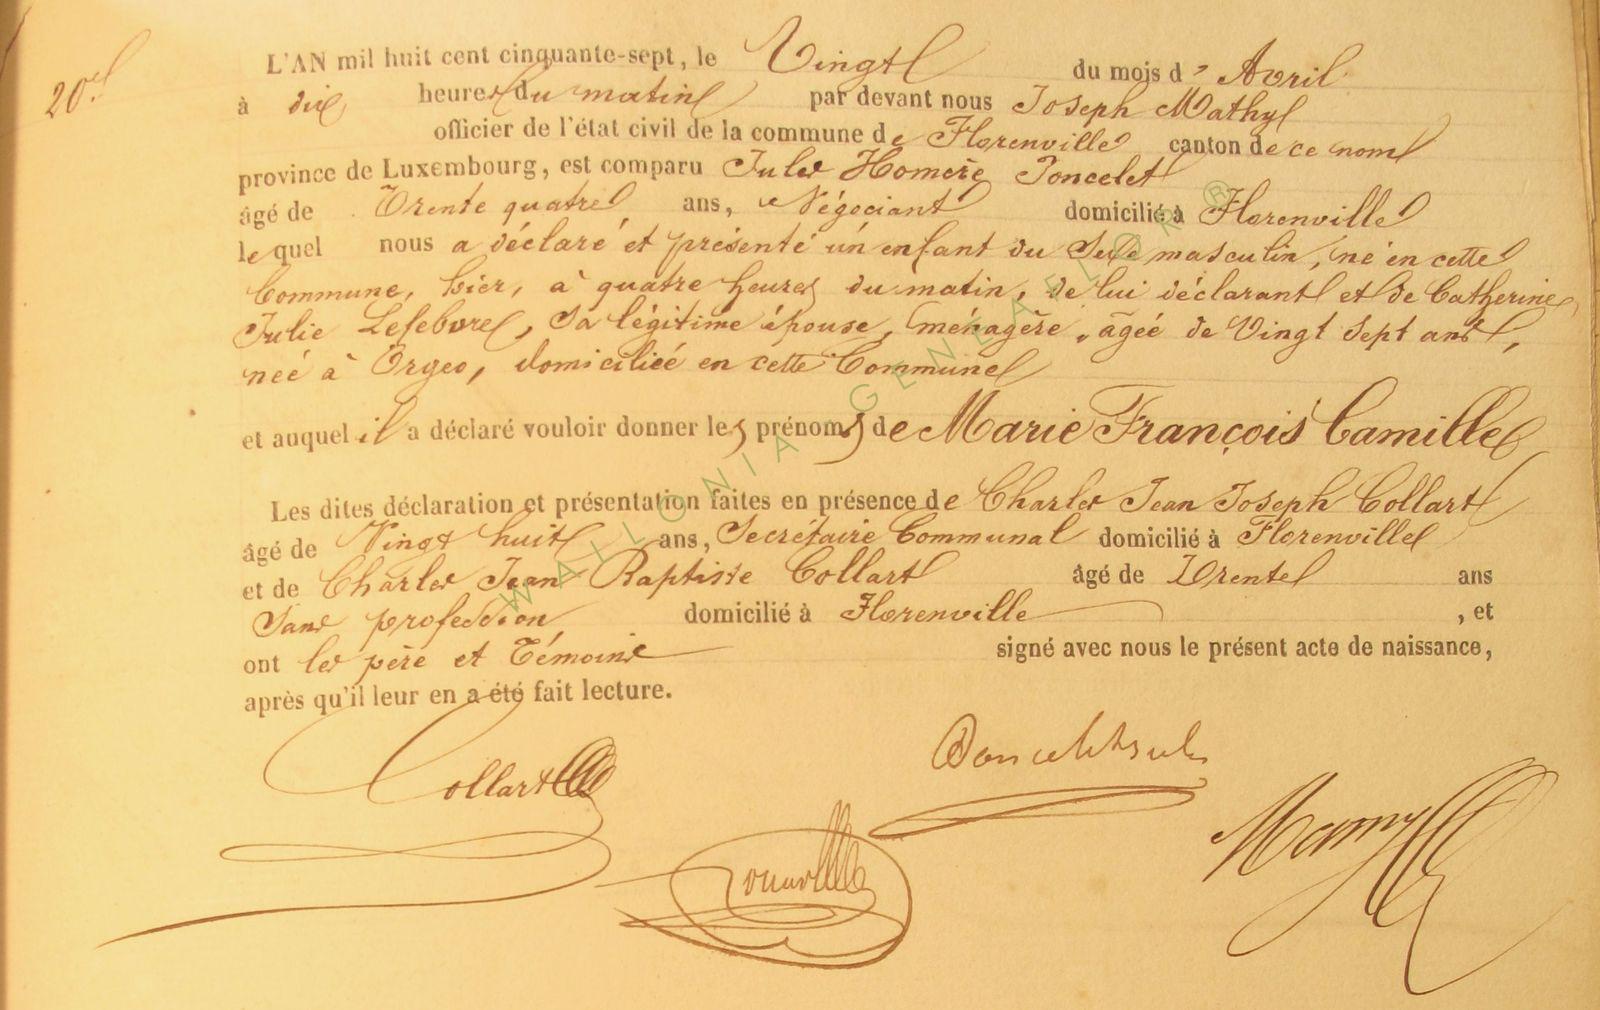 20e
L'AN mil huit cent cinquante-sept, le Vingt du mois d' Avril
à dix heures du matin par devant nous Joseph Mathy
officier de l'état civil de la commune de Florenville canton de ce nom
province de Luxembourg, est comparu Jules Homère Poncelet
âgé de Trente quatre ans, Négociant domicilié à Florenville
le quel nous a déclaré et présenté un enfant du Sexe masculin, né en cette
Commune, hier, à quatre heures du matin, de lui déclarant et de Catherine
Julie Lefebvre, Sa légitime épouse, ménagère, ageé de Vingt Sept ans,
neé à Orgeo, domicilieé en cette Commune
et auquel il a déclaré vouloir donner les prénoms de Marie François Camille
Les dites déclaration et présentation faites en présence de Charles Jean Joseph Collart
âgé de Vingt huit ans, Secrétaire Communal domicilié à Florenville
et de Charles Jean Baptiste Collart âgé de Trente ans
Sans profession domicilié à Florenville , et
ont les père et Témoins signé avec nous le présent acte de naissance,
après qu'il leur en a été fait lecture.
Collart
WALLONIA GENEALOR ®